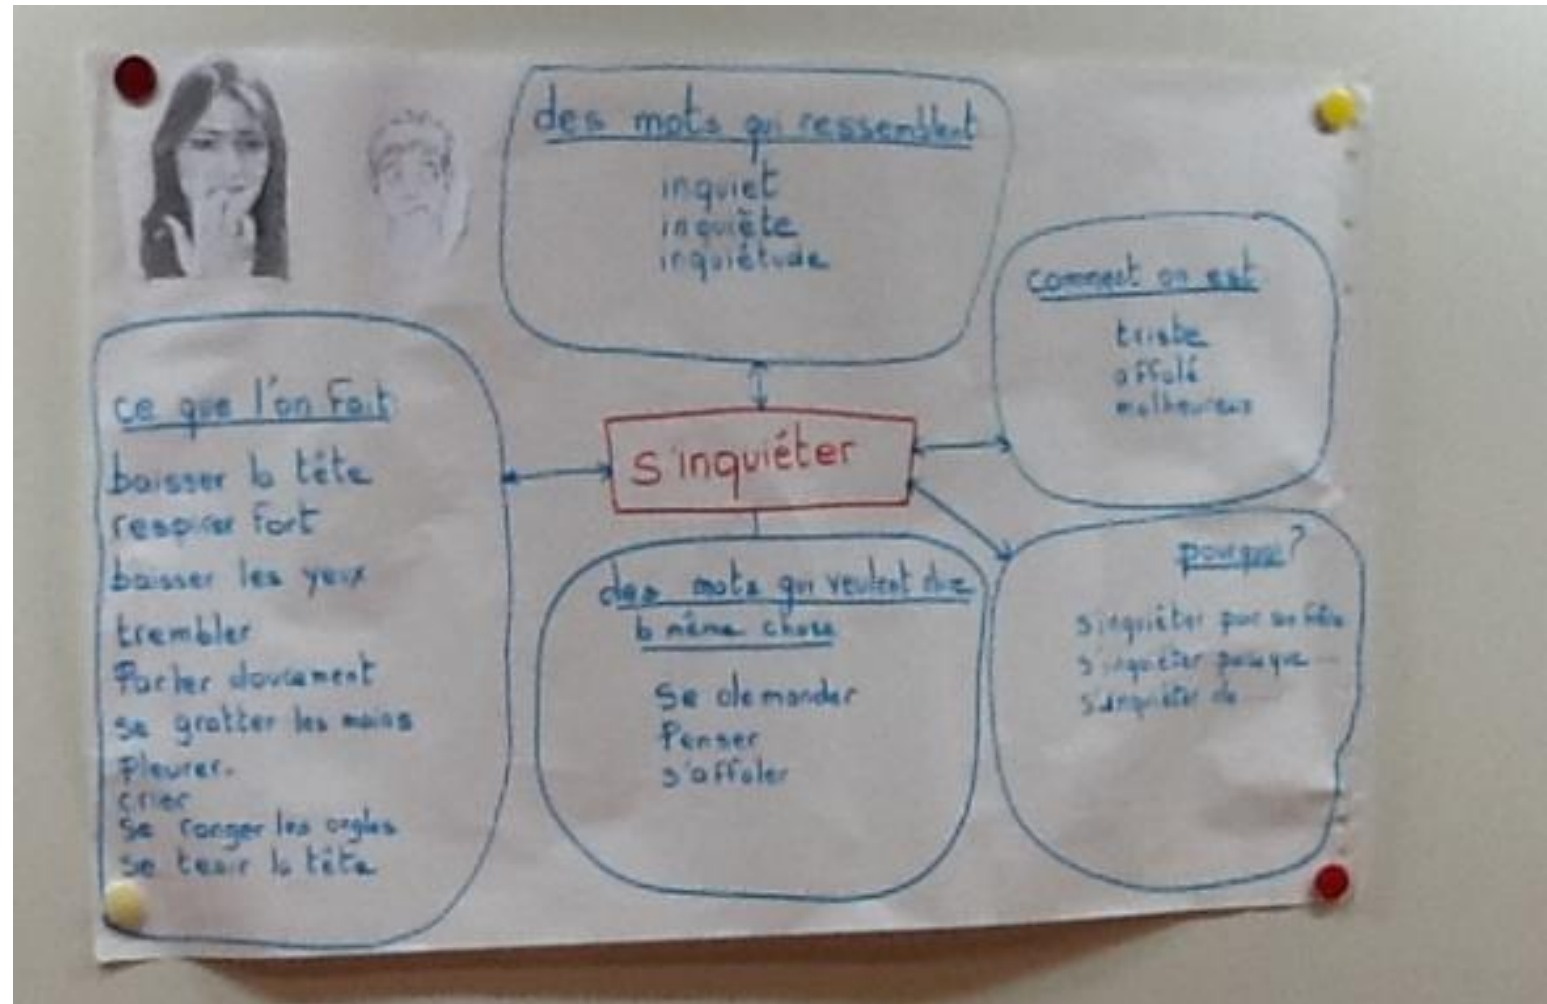 des mots qui ressemblent
inquiet
inquiète
inquiétude
comment on est
triste
affolé
malheureux
ce que l'on fait
baisser la tête
respirer fort
baisser les yeux
trembler
Parler doucement
se gratter les mains
Pleurer.
crier
se ronger les ongles
se tenir la tête
s'inquiéter
des mots qui veulent dire
la même chose
se demander
Penser
s'affoler
pourquoi?
s'inquiéter pour
s'inquiéter parce que
s'inquiéter de